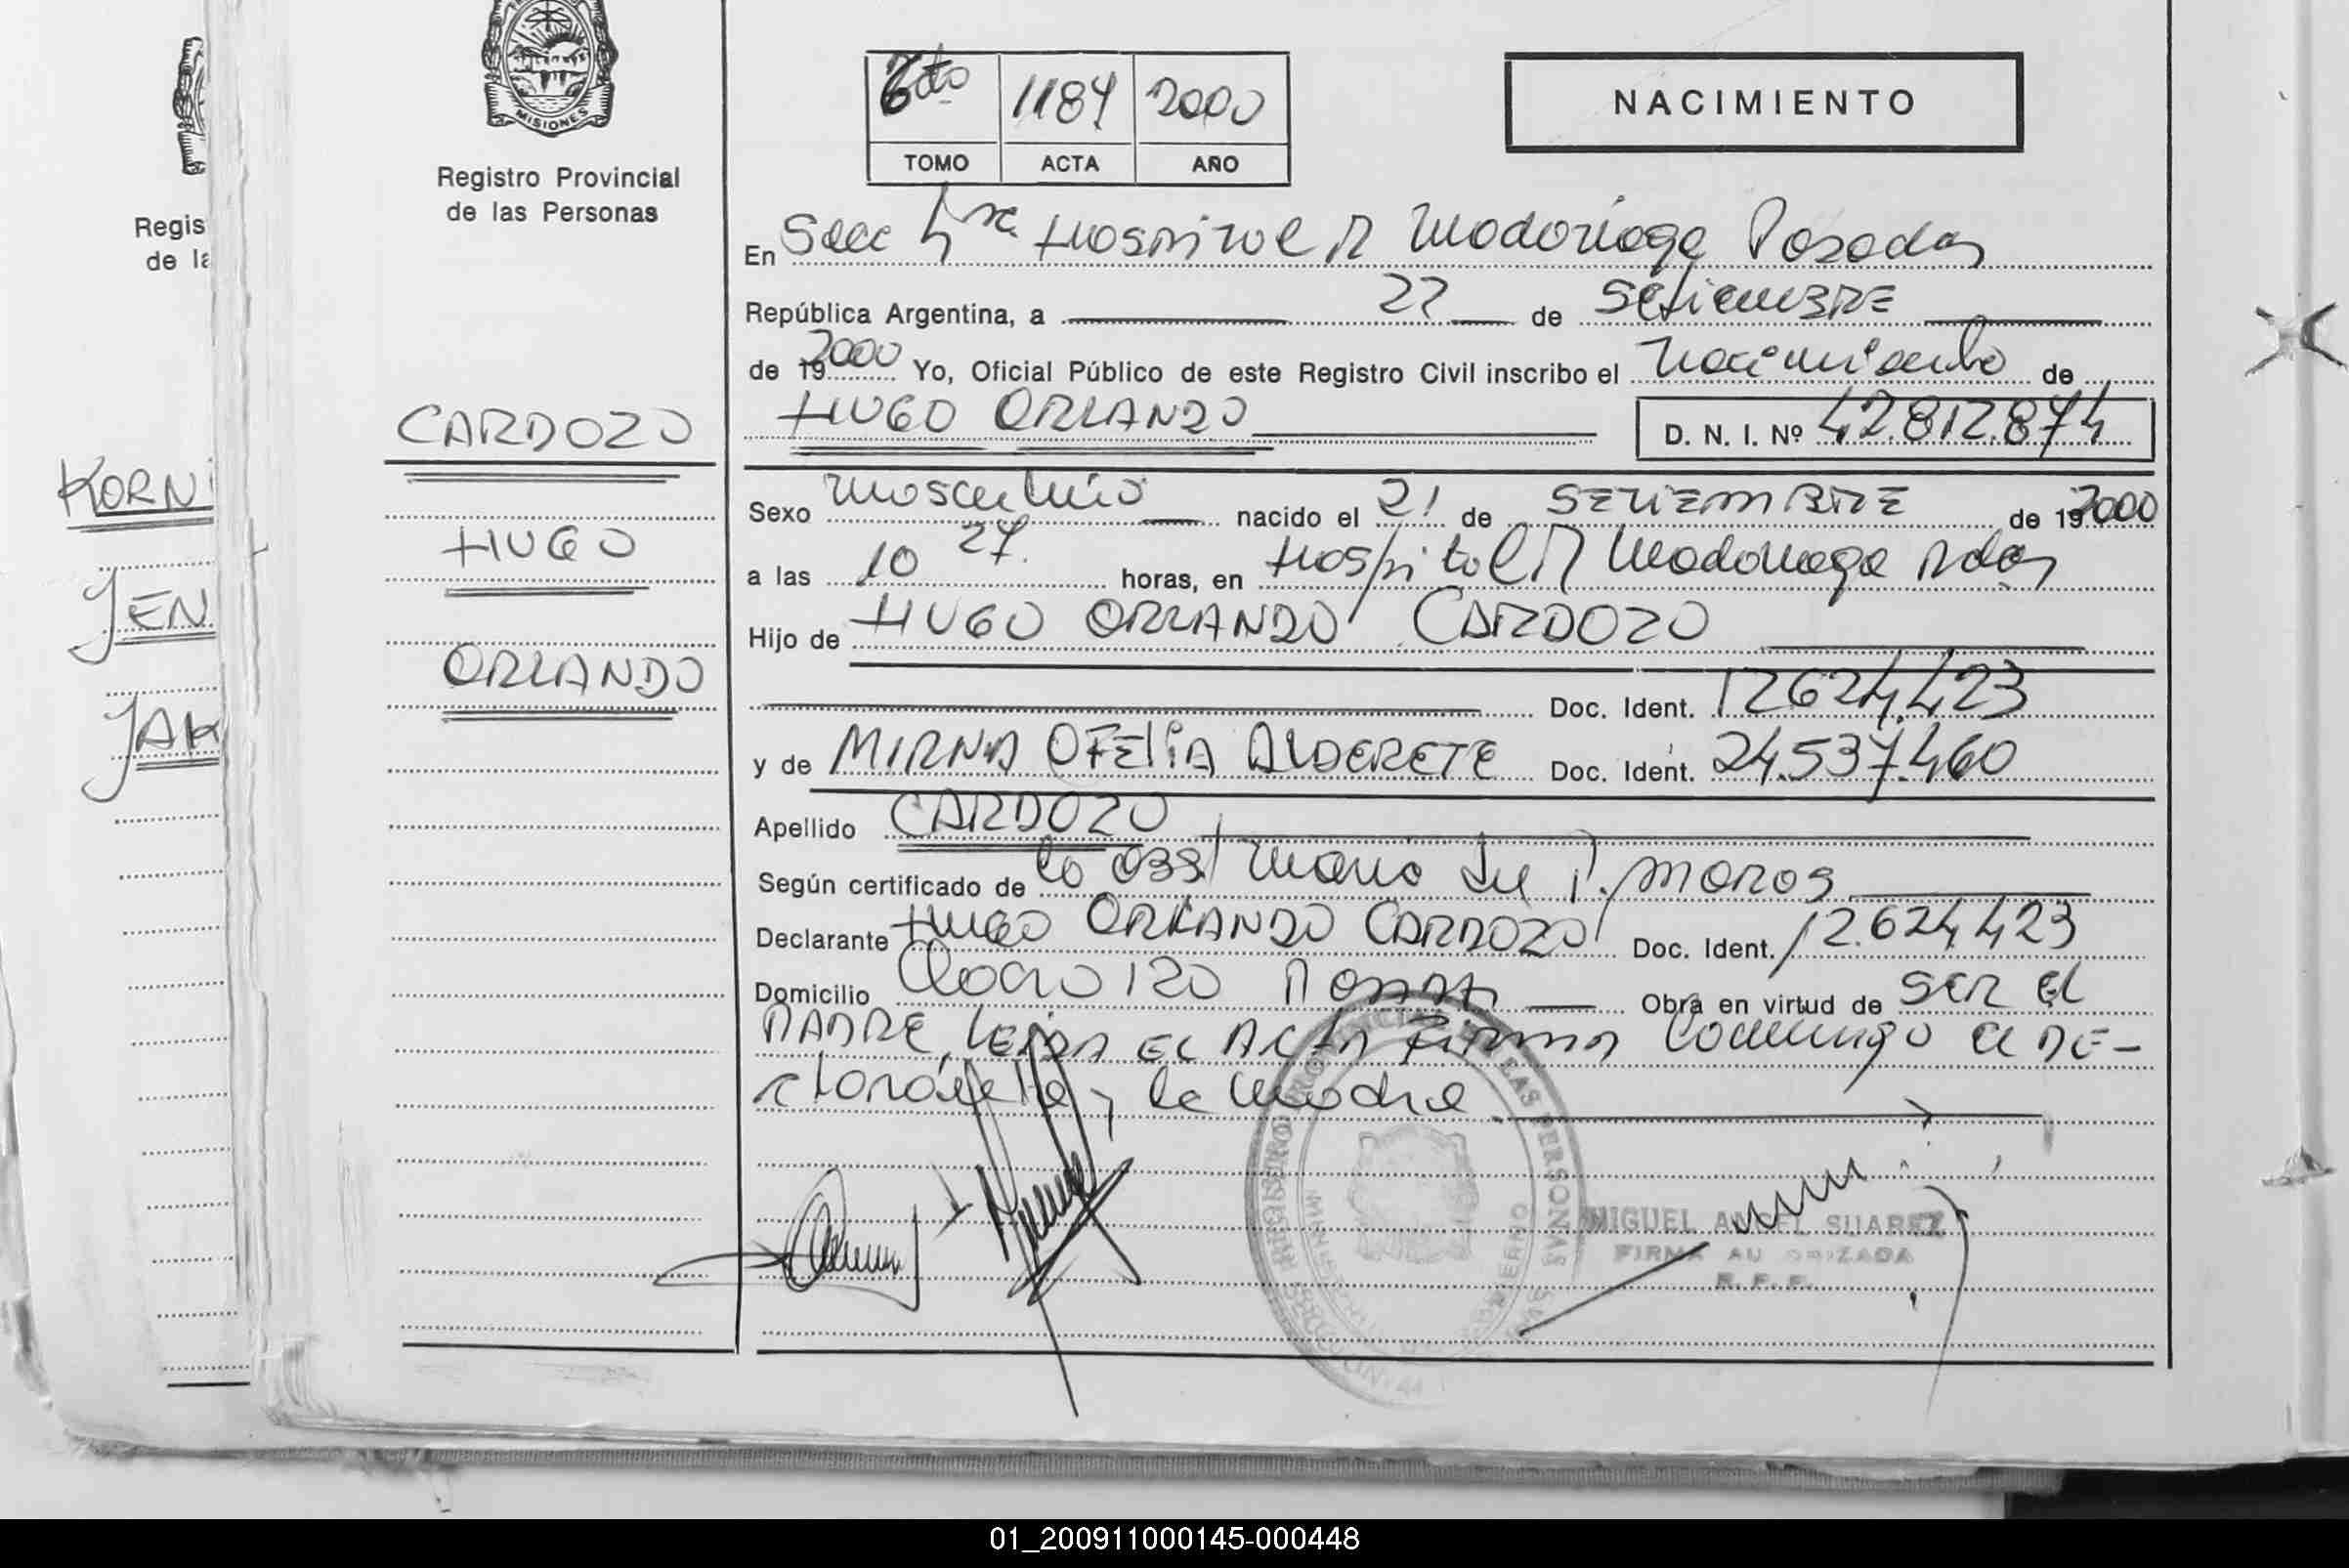 MISIONES
Registro Provincial
de las Personas
Regis
de la
KORNI
JEN
JAK
CARDOZO
HUGO
ORLANDO
6to 1184 2000
TOMO ACTA AÑO
NACIMIENTO
En Secc Hospital R Madariaga Posadas
República Argentina, a 22 de Setiembre
de 19 2000 Yo, Oficial Público de este Registro Civil inscribo el nacimiento de
HUGO ORLANDO D. N. I. Nº 42.812.874
Sexo masculino nacido el 21 de SETIEMBRE de 19 2000
a las 10 27 horas, en Hospital R Madariaga Pdas
Hijo de HUGO ORLANDO CARDOZO
Doc. Ident. 12624.423
y de MIRNA OFELIA ALDERETE Doc. Ident. 24.537.460
Apellido CARDOZO
Según certificado de la obst Maria del P. MOROS
Declarante HUGO ORLANDO CARDOZO Doc. Ident. 12.624.423
Domicilio 120 Obra en virtud de SER EL
PADRE, LEIDA EL ACTA FIRMA conmigo el DE-
clarante y la madre
REGISTRO PROVINCIAL DE LAS PERSONAS
MIGUEL ANGEL SUAREZ
FIRMA AUTORIZADA
01_200911000145-000448